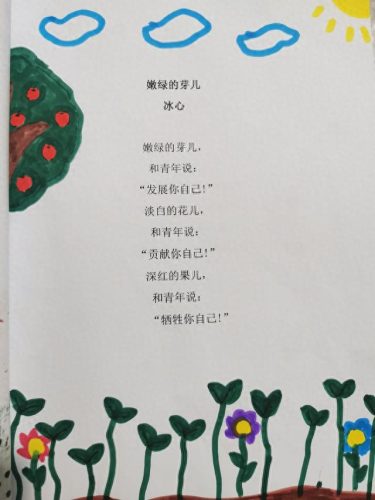 嫩绿的芽儿
冰心
嫩绿的芽儿，
和青年说：
“发展你自己！”
淡白的花儿，
和青年说：
“贡献你自己！”
深红的果儿，
和青年说：
“牺牲你自己！”